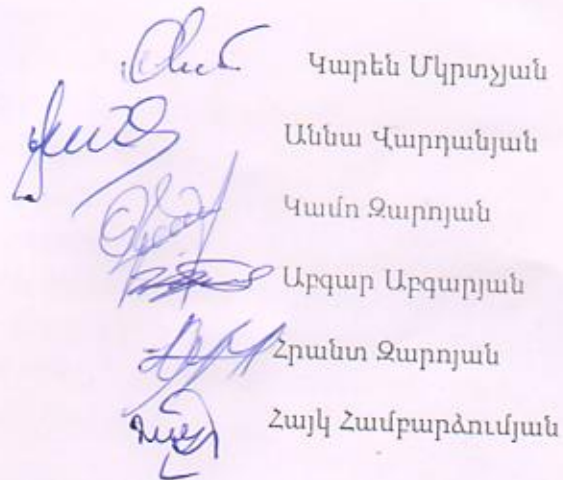 Կարեն Մկրտչյան
Աննա Վարդանյան
Կամո Զարոյան
Աբգար Աբգարյան
Հրանտ Զարոյան
Հայկ Համբարձումյան